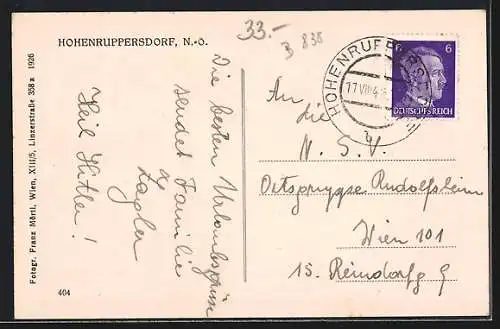 33.-
B 838
HOHENRUPPERSDORF, N.-Ö.
HOHENRUPPERSDORF
17.VIII.4
h
6
DEUTSCHES REICH
Die besten Urlaubsgrüsse
sendet Familie
Zagler
Heil Hitler!
An
die
N. S. V.
Ortsgruppe Rudolfsheim
Wien 101
15. Reindorfg 9
Fotogr. Franz Mörtl, Wien, XIII/5, Linzerstraße 358a 1926
404